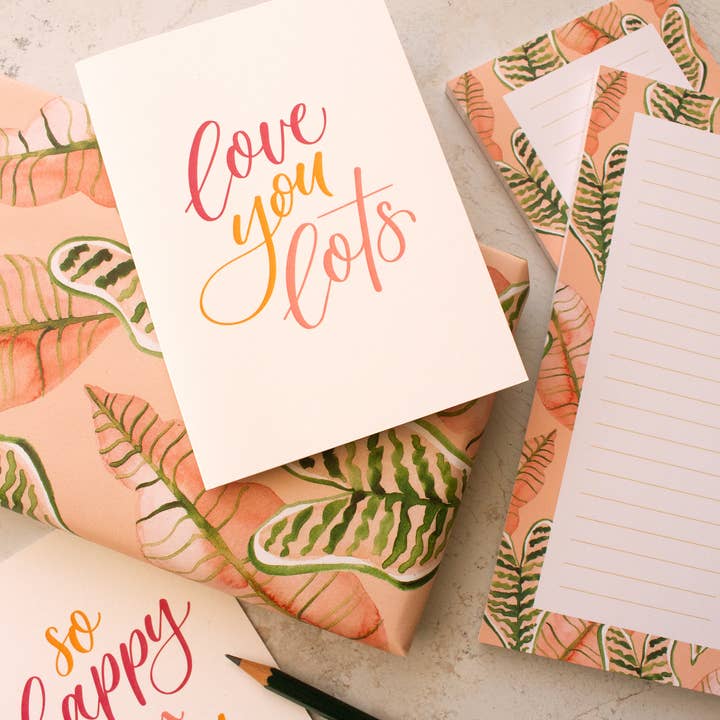 love
you
lots
so
happy